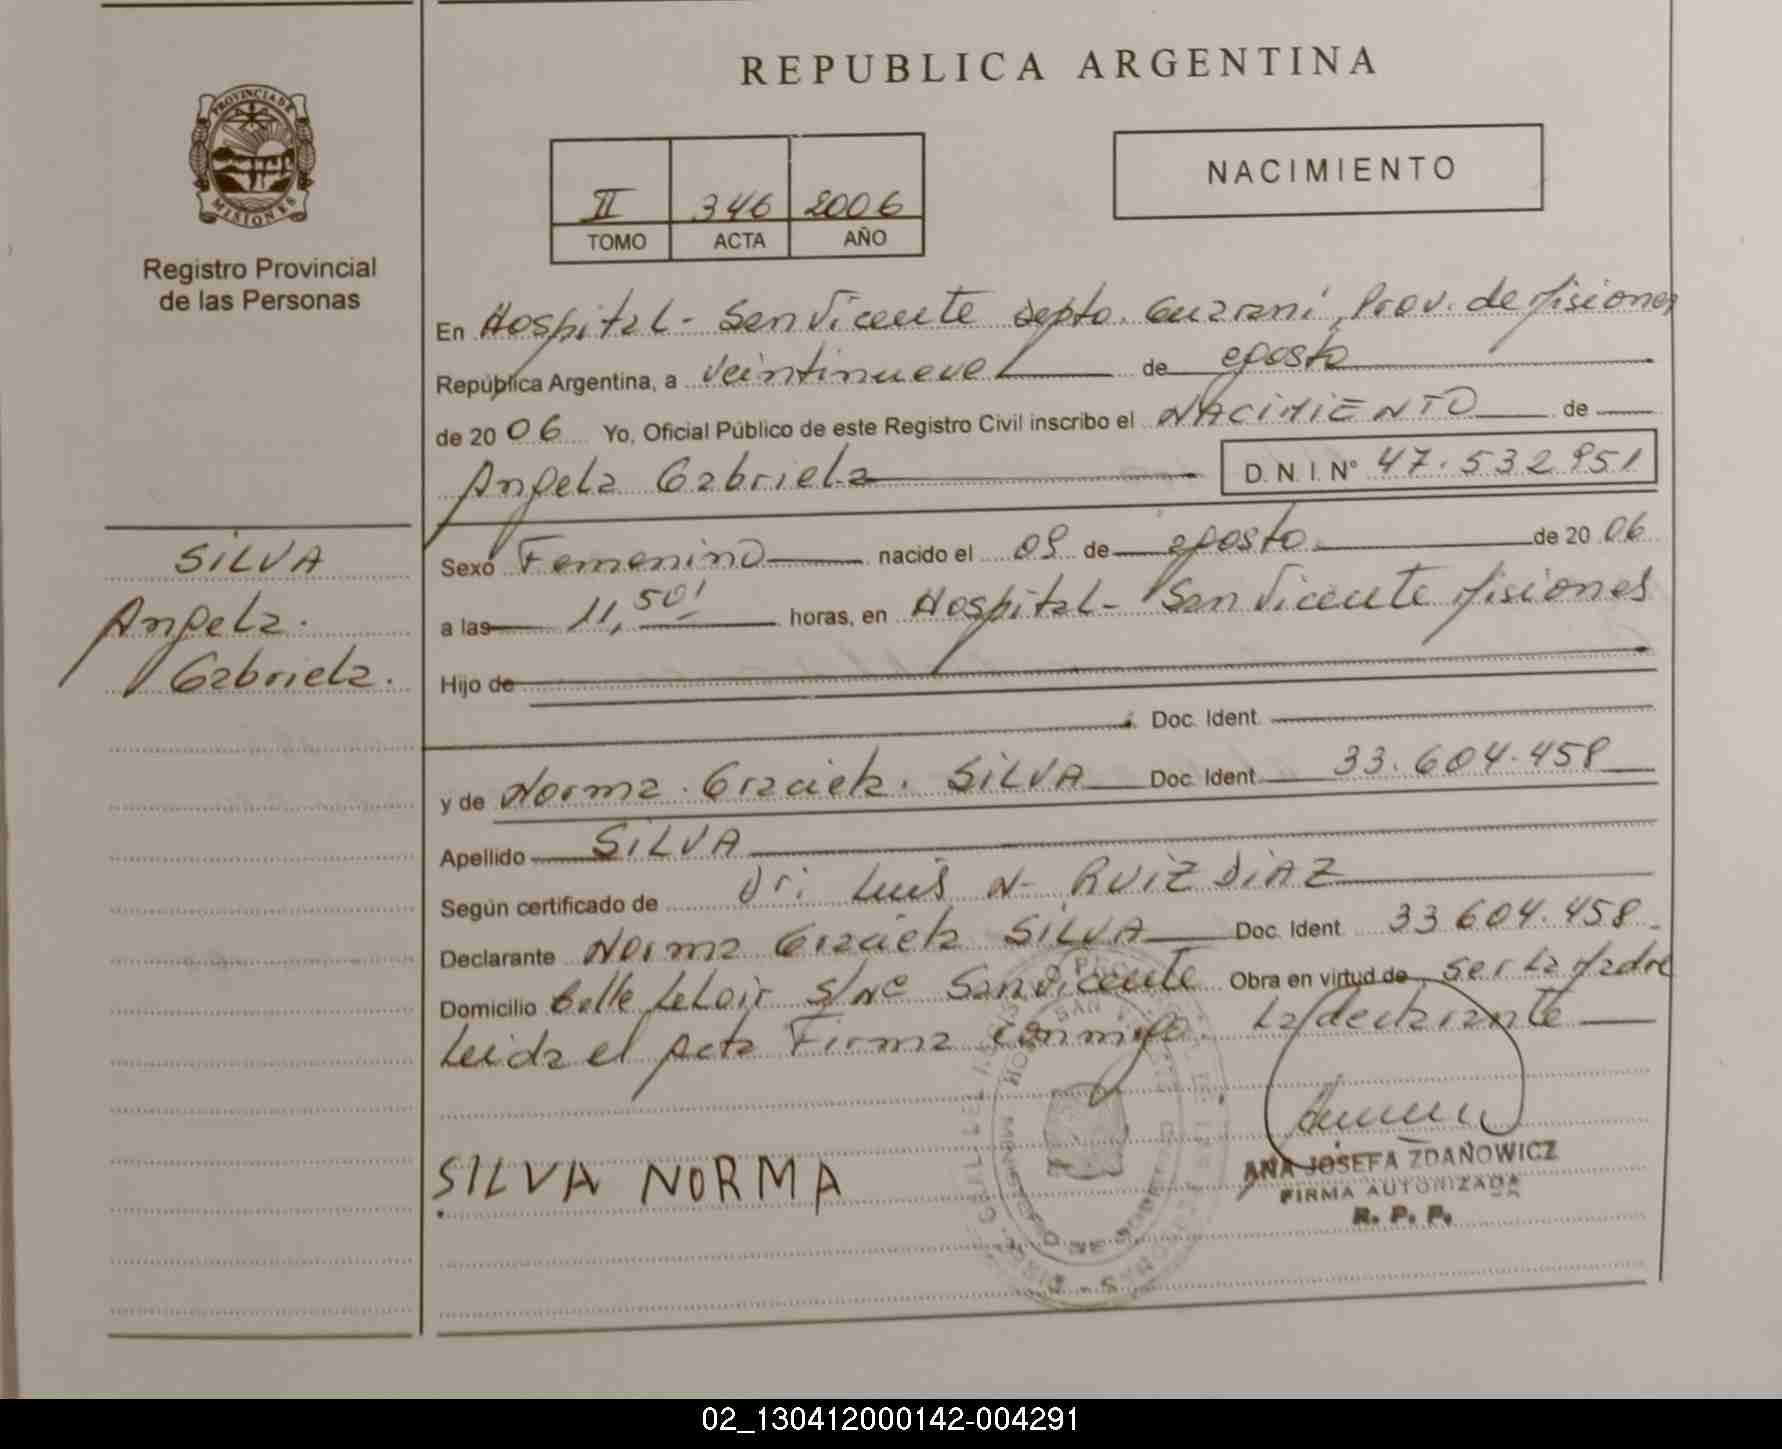 REPUBLICA ARGENTINA
PROVINCIA DE
MISIONES
Registro Provincial
de las Personas
II 346 2006
TOMO ACTA AÑO
NACIMIENTO
En Hospital - San Vicente Depto. Guarani, Prov. de Misiones
República Argentina, a veintinueve de agosto
de 20 06 Yo, Oficial Público de este Registro Civil inscribo el NACIMIENTO de
Angela Gabriela D. N. I. N° 47.532 951
SILVA
Angela.
Gabriela.
Sexo Femenino nacido el 09 de agosto de 20 06
a las 11,50' horas, en Hospital - San Vicente Misiones
Hijo de
Doc. Ident.
y de Norma. Graciela. SILVA Doc. Ident. 33.604.458
Apellido SILVA
Según certificado de Dr: Luis N- RUIZ DIAZ
Declarante Norma Graciela SILVA Doc. Ident. 33 604.458
Domicilio Calle Leloir S/Nº San Vicente Obra en virtud de ser la Madre
Leida el Acta Firma conmigo. La declarante
SILVA NORMA
ANA JOSEFA ZDANOWICZ
FIRMA AUTORIZADA
R. P. P.
02_130412000142-004291